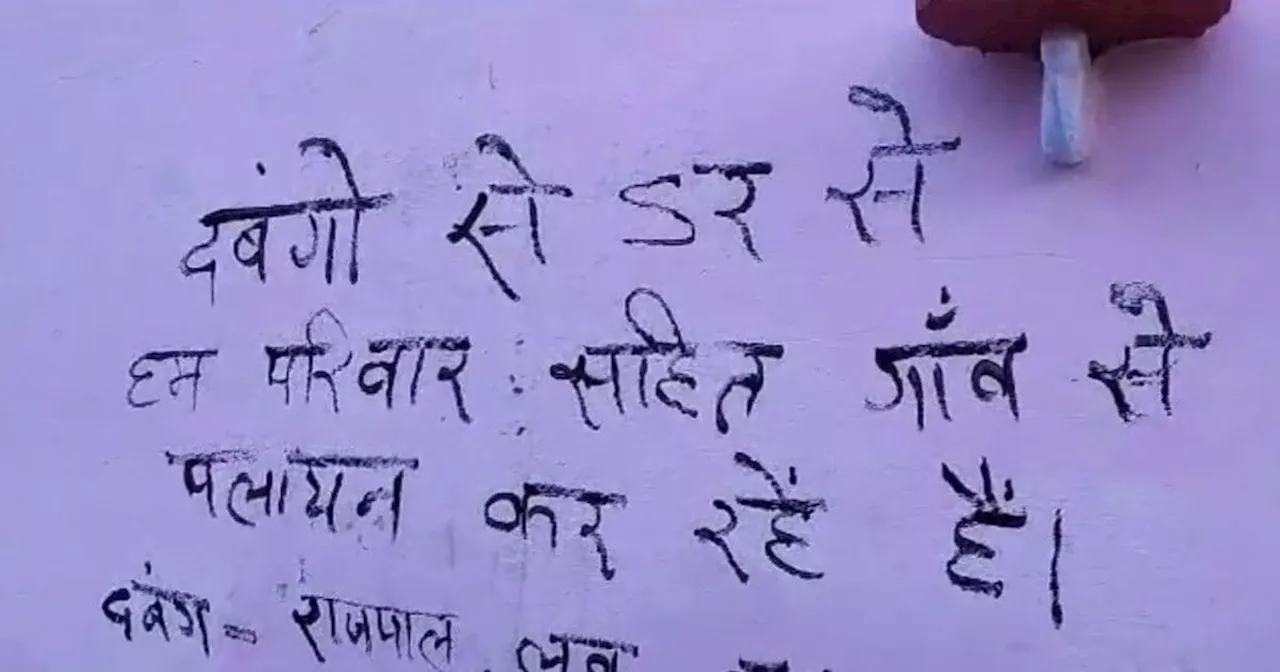 दबंगो से डर से
हम परिवार सहित गाँव से
पलायन कर रहें हैं।
दबंग - राजपाल, लव